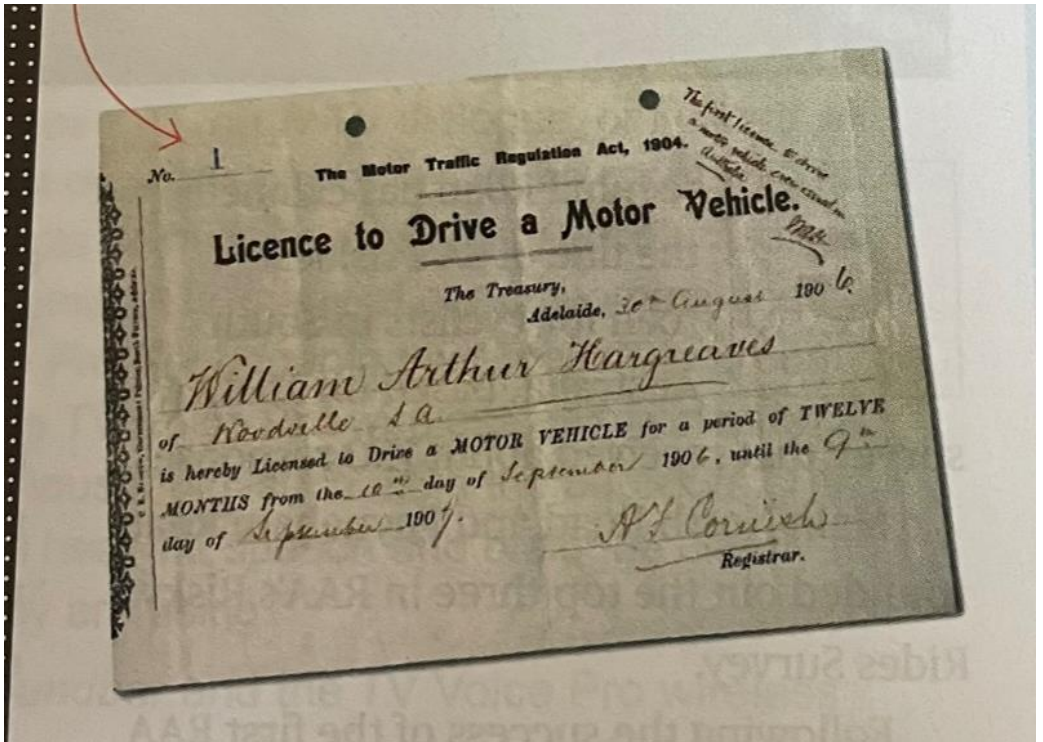 No. 1
The Motor Traffic Regulation Act, 1904.
The first licence to drive
a motor vehicle ever issued in
Australia
Licence to Drive a Motor Vehicle.
The Treasury,
Adelaide, 30th August 1906.
William Arthur Hargreaves
of Woodville S A.
is hereby Licensed to Drive a MOTOR VEHICLE for a period of TWELVE
MONTHS from the 10th day of September 1906, until the 9th
day of September 1907.
A F Cornish
Registrar.